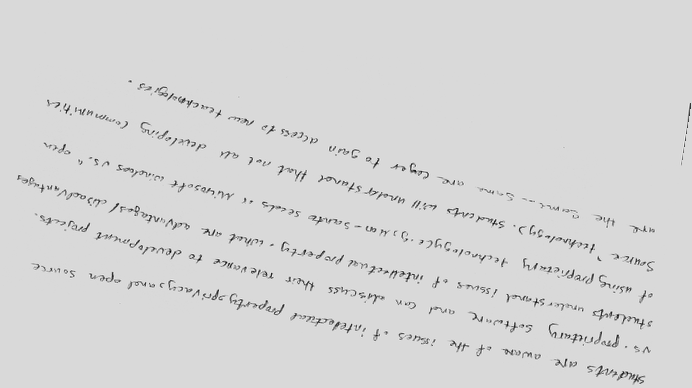 students are aware of the issues of intelectical property, privacy, and open source
vs. proprietary software and can discuss their relevance to development projects.
students understand issues of intellectual property. what are advantages/disadvantages
of using proprietary technology (e.g., Mon-santo seeds or Microsoft windoes vs. "open
Source" technology). Students will understanet that not all developing Communities
are the same -- some are eager to gain access to new teachnologies.